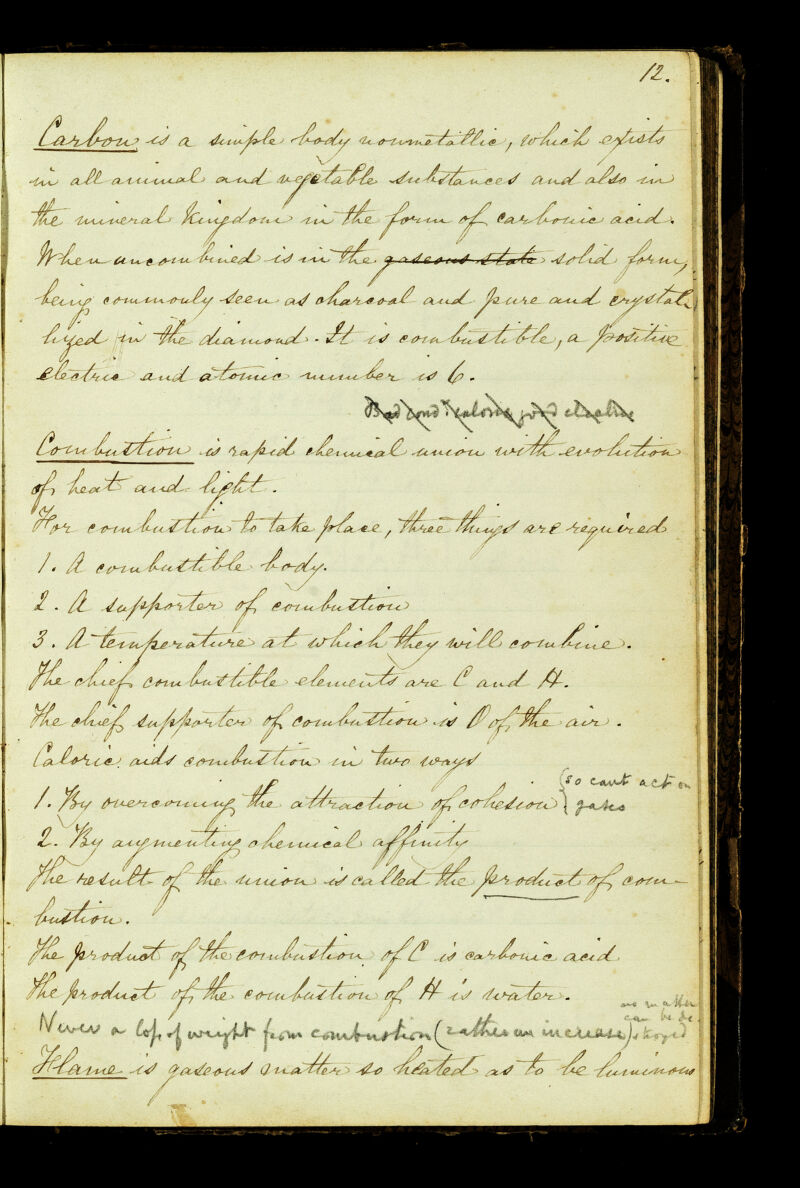 12.
Carbon is a simple body nonmetallic, which exists
in all animal and vegetable substances and also in
the mineral kingdom in the form of carbonic acid.
When uncombined is in the gaseous state solid form,
being commonly seen as charcoal and pure and crystal-
lized in the diamond. It is combustible, a positive
electric and atomic number is 6.
Bad cond: caloric good electric
Combustion is rapid chemical union with evolution
of heat and light.
For combustion to take place, three things are required
1. A combustible body.
2. A supporter of combustion
3. A temperature at which they will combine.
The chief combustible elements are C and H.
The chief supporter of combustion is O of the air.
Caloric aids combustion in two ways
(so cant act on
1. By overcoming the attraction of cohesion { gases
2. By augmenting chemical affinity
The result of the union is called the product of com-
bustion.
The product of the combustion of C is carbonic acid
The product of the combustion of H is water.
no matter
can be de-
Never a loss of weight from combustion (rather an increase) stroyed
Flame is gaseous matter so heated as to be luminous